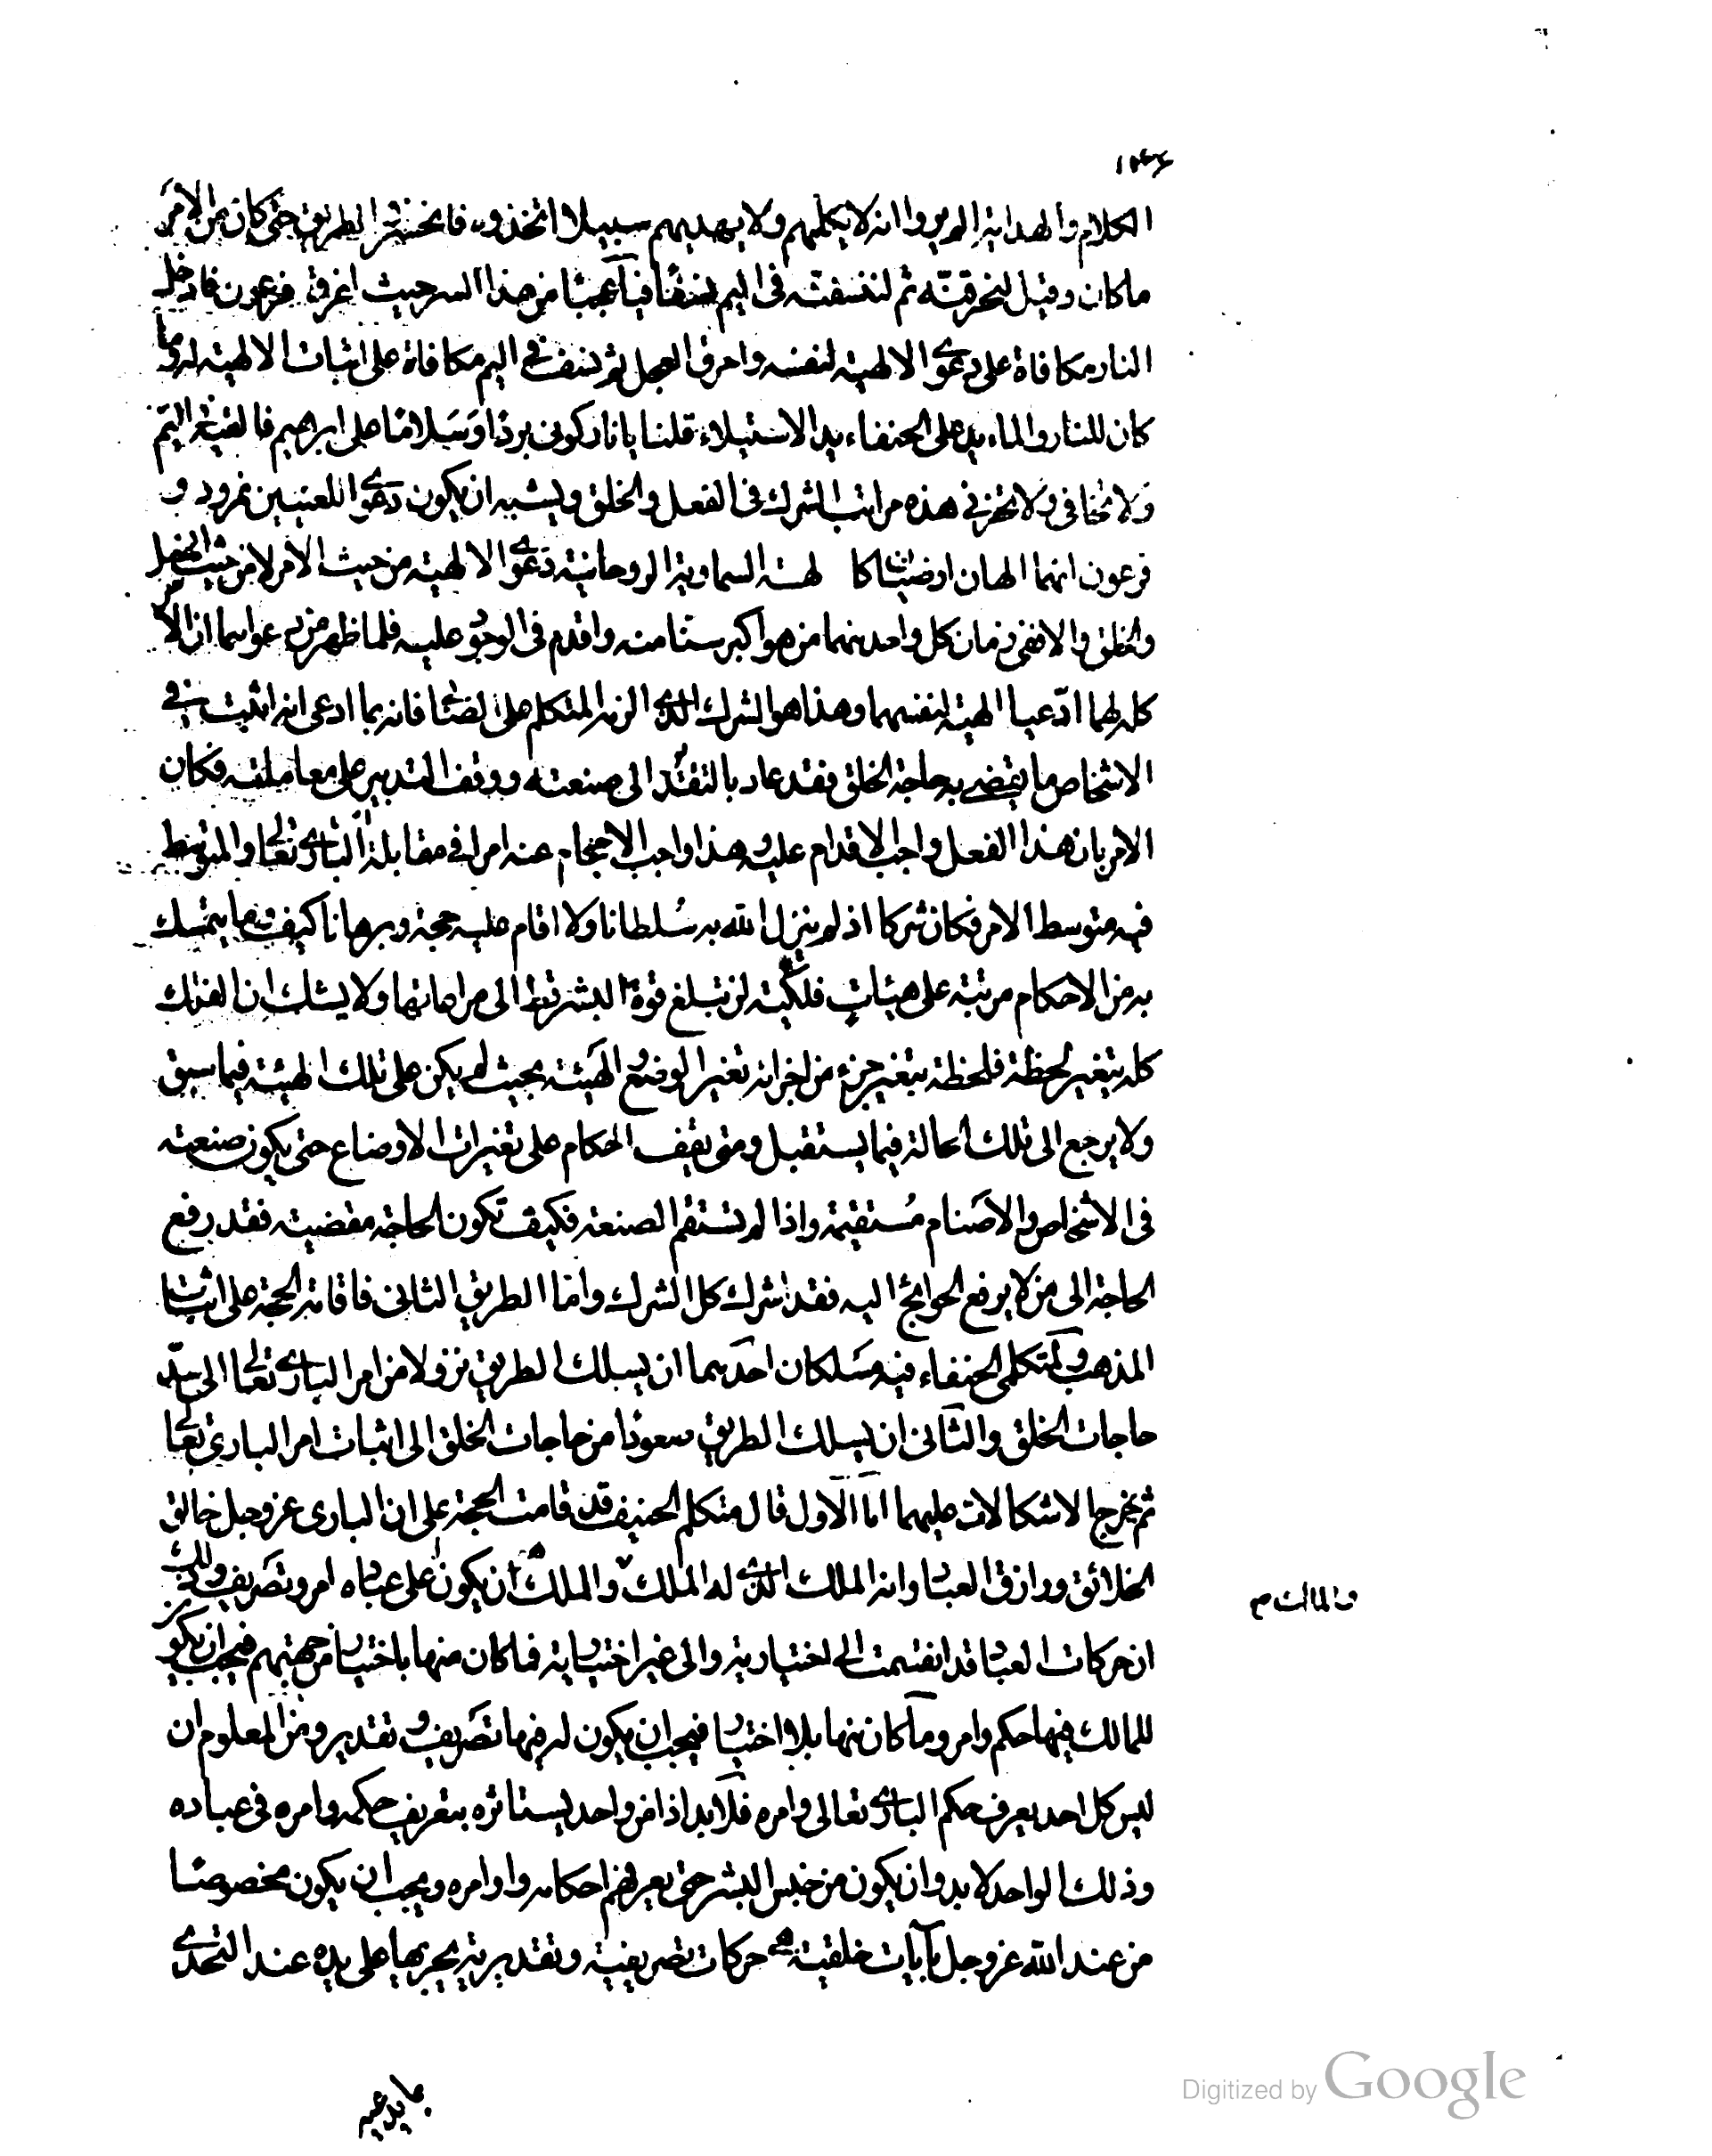 ١٢٤٦
الكلام والهداية الم يروا انه لا يكلمهم ولا يهديهم سبيلا اتخذوه فانحسم الطريق حتى كان من الامر
ما كان وقيل لنحرقنّه ثم لننسفنه في اليم نسفا فيا عجبا من هذا السر حيث اغرق فرعون فادخل
النار مكافاة على دعوى الالهية لنفسه واحرق العجل ثم نسف في اليم مكافاة على اثبات الالهية له وما
كان للنار والماء يد على الحنفاء يد الاستيلاء قلنا يا نار كوني بردا وسلاما على ابرهيم فالقيه في اليم
ولا تخافي ولا تحزني هذه مراتب الشرك في الفعل والخلق ويشبه ان يكون دعوى اللعينين نمرود و
فرعون انهما الهان ارضيان كا لهة السماوية الروحانية دعوى الالهية من حيث الامر لا من حيث الفعل
والخلق والا ففي زمان كل واحد منهما من هو اكبر سنا منه واقدم في الوجود عليه فلما ظهر من دعواهما ان الامر
كله لهما ادّعيا الهية لنفسهما وهذا هو الشرك الذي الزمه المتكلم على الصابئ فانه بما ادعى انه اثبت في
الاشخاص ما يقضي به حاجة الخلق فقد عاد بالتقدير الى صنعته ووقف التدبير على معاملته فكان
الامر بان هذا الفعل واجب الاقدام عليه وهذا واجب الاحجام عنه امرا في مقابلة امر الباري تعالى والمتوسط
فيه متوسط الامر فكان شركا اذ لم ينزل الله به سلطانا ولا اقام عليه حجة وبرهانا كيف وما يتمسك
به من الاحكام مرتبة على هيئات فلكية لن تبلغ قوة البشر قط الى مراعاتها ولا يشك ان الفلك
كله يتغير لحظة فلحظة بتغير جزء من اجزائه تغير الوضع والهيئة بحيث لم يكن على تلك الهيئة فيما سبق
ولا يرجع الى تلك الحالة فيما يستقبل ومتى يقف الحكام على تغيرات الاوضاع حتى يكون صنعته
في الاشخاص والاصنام مستقيمة واذا لم تستقم الصنعة فكيف تكون الحاجة مقضية فقد رفع
الحاجة الى من لا يرفع الحوائج اليه فقد اشرك كل الشرك واما الطريق الثاني فاقامة الحجة على اثبات
المذهب ولمتكلمي الحنفاء فيه مسلكان احدهما ان يسلك الطريق نزولا من امر الباري تعالى الى سدّ
حاجات الخلق والثاني ان يسلك الطريق صعودا من حاجات الخلق الى اثبات امر الباري تعالى
ثم يخرجا لاشكالات عليهما اما الاول قال متكلم الحنيف قد قامت الحجة على ان الباري عز وجل خالق
الخلائق ورازق العباد وانه الملك الذي له الملك والملك ان يكون على عباده امر وتصريف وذلك
فالمالك م
ان حركات العباد قد انقسمت الى اختيارية والى غير اختيارية فما كان منها باختيار من جهتهم فيجب ان يكون
للمالك فيها حكم وامر وما كان منها بلا اختيار فيجب ان يكون له فيها تصريف وتقدير ومن المعلوم ان
ليس كل احد يعرف حكم الباري تعالى وامره فلا بد اذا من واحد يستاثره بتعريف حكمه وامره في عباده
وذلك الواحد لا بد وان يكون من جنس البشر حتى يعرفهم احكامه واوامره ويجب ان يكون مخصوصا
من عند الله عز وجل بآيات خلقية هي حركات تصريفية وتقديرية يجريها على يده عند التحدي